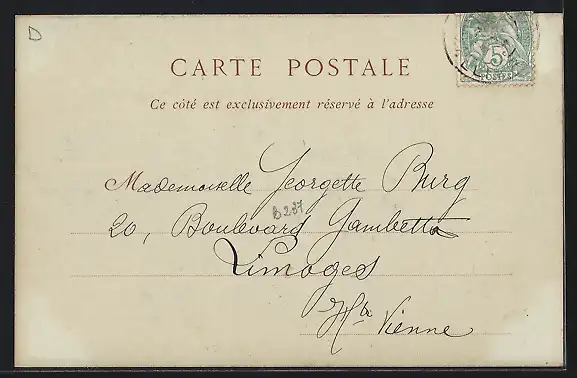 D
5c
POSTES
CARTE POSTALE
Ce côté est exclusivement réservé à l'adresse
Mademoiselle Georgette Burg
B 237
20, Boulevard Gambetta
Limoges
Hte Vienne